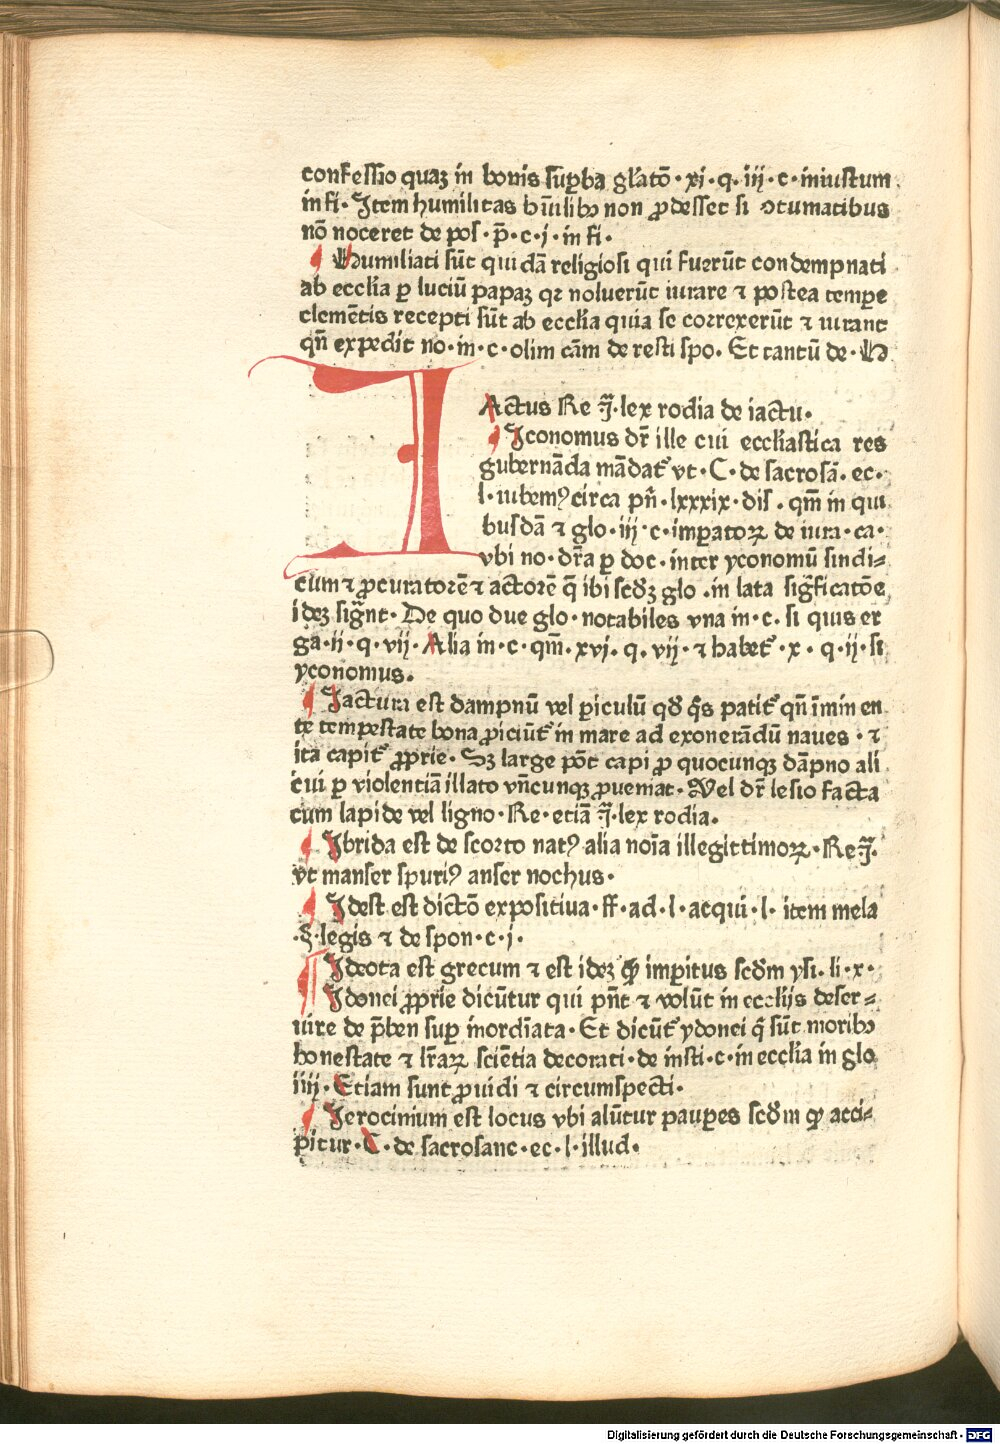 confessio quaꝫ in bonis suꝑba gl̄atō · xi · q. iij · c · iniustum
in fi · Item humilitas hūilibꝰ non ꝓdesset si ↄtumatibus
nō noceret de pos · p̄ · c · j · in fi ·
Humiliati sūt quidā religiosi qui fuerūt condempnati
ab ecclia ꝑ luciū papaꝫ qꝛ noluerūt iurare ⁊ postea tempꝛe
clemētis recepti sūt ab ecclia quia se correxerūt ⁊ iurant
qn̄ expedit no · in · c · olim cām de resti spo. Et tantū de · H
IActus Re ꝗ̄ · lex rodia de iactu ·
Iconomus dr̄ ille cui eccliastica res
gubernāda mādat᷑ vt · C · de sacrosā. ec ·
l · iubemꝰ circa pn̄ · lxxxix · dis . qm̄ in qui
busdā ⁊ glo · iij · c · imꝑatoꝝ de iura · ca ·
vbi no · dr̄a ꝑ doc · inter yconomū sindi⸗
cum ⁊ ꝓcuratorē ⁊ actorē q̄ ibi scd̄ꝫ glo . in lata sigīficatōe
ideꝫ sigīnt · De quo due glo · notabiles vna in · c. si quis er
ga · ii · q · vij · Alia in · c · qm̄. xvi. q. vij · ⁊ habet᷑ · x · q · ij · si
yconomus.
Iactura est dampnū vel ꝑiculū qd̄ q̄s patit᷑ qn̄ īminen
te tempestate bona ꝓiciūt᷑ in mare ad exonerādū naues · ⁊
ita capit᷑ ꝓprie · Sꝫ large pōt capi ꝓ quocunqꝫ dāpno ali
cui ꝑ violentiā illato vn̄cunqꝫ ꝓueniat · Vel dr̄ lesio facta
cum lapide vel ligno · Re · etiā ꝗ̄ · lex rodia.
Ibrida est de scorto natꝰ alia noīa illegittimoꝝ · Re ꝗ̄ ·
vt manser spuriꝰ anser nochus ·
Idest est dictō expositiua · ff · ad · l · acqui · l · item mela
· § · legis ⁊ de spon · c · j ·
Ideota est grecum ⁊ est ideꝫ qḋ imꝑitus scd̄m ysi. li · x ·
Idonei ꝓprie dicūtur qui pn̄t ⁊ volūt in ecclijs deser⸗
uire de p̄ben suꝑ inordīata · Et dicūt᷑ ydonei q̄ sūt moribꝰ
honestate ⁊ lr̄aꝝ sciētia decorati · de insti · c · in ecclia in glo
iiij · Etiam sunt ꝓuidi ⁊ circumspecti ·
Ierocinium est locus vbi alūtur pauꝑes scd̄m qḋ acci⸗
pitur · C · de sacrosanc · ec · l · illud ·
Digitalisierung gefördert durch die Deutsche Forschungsgemeinschaft - DFG